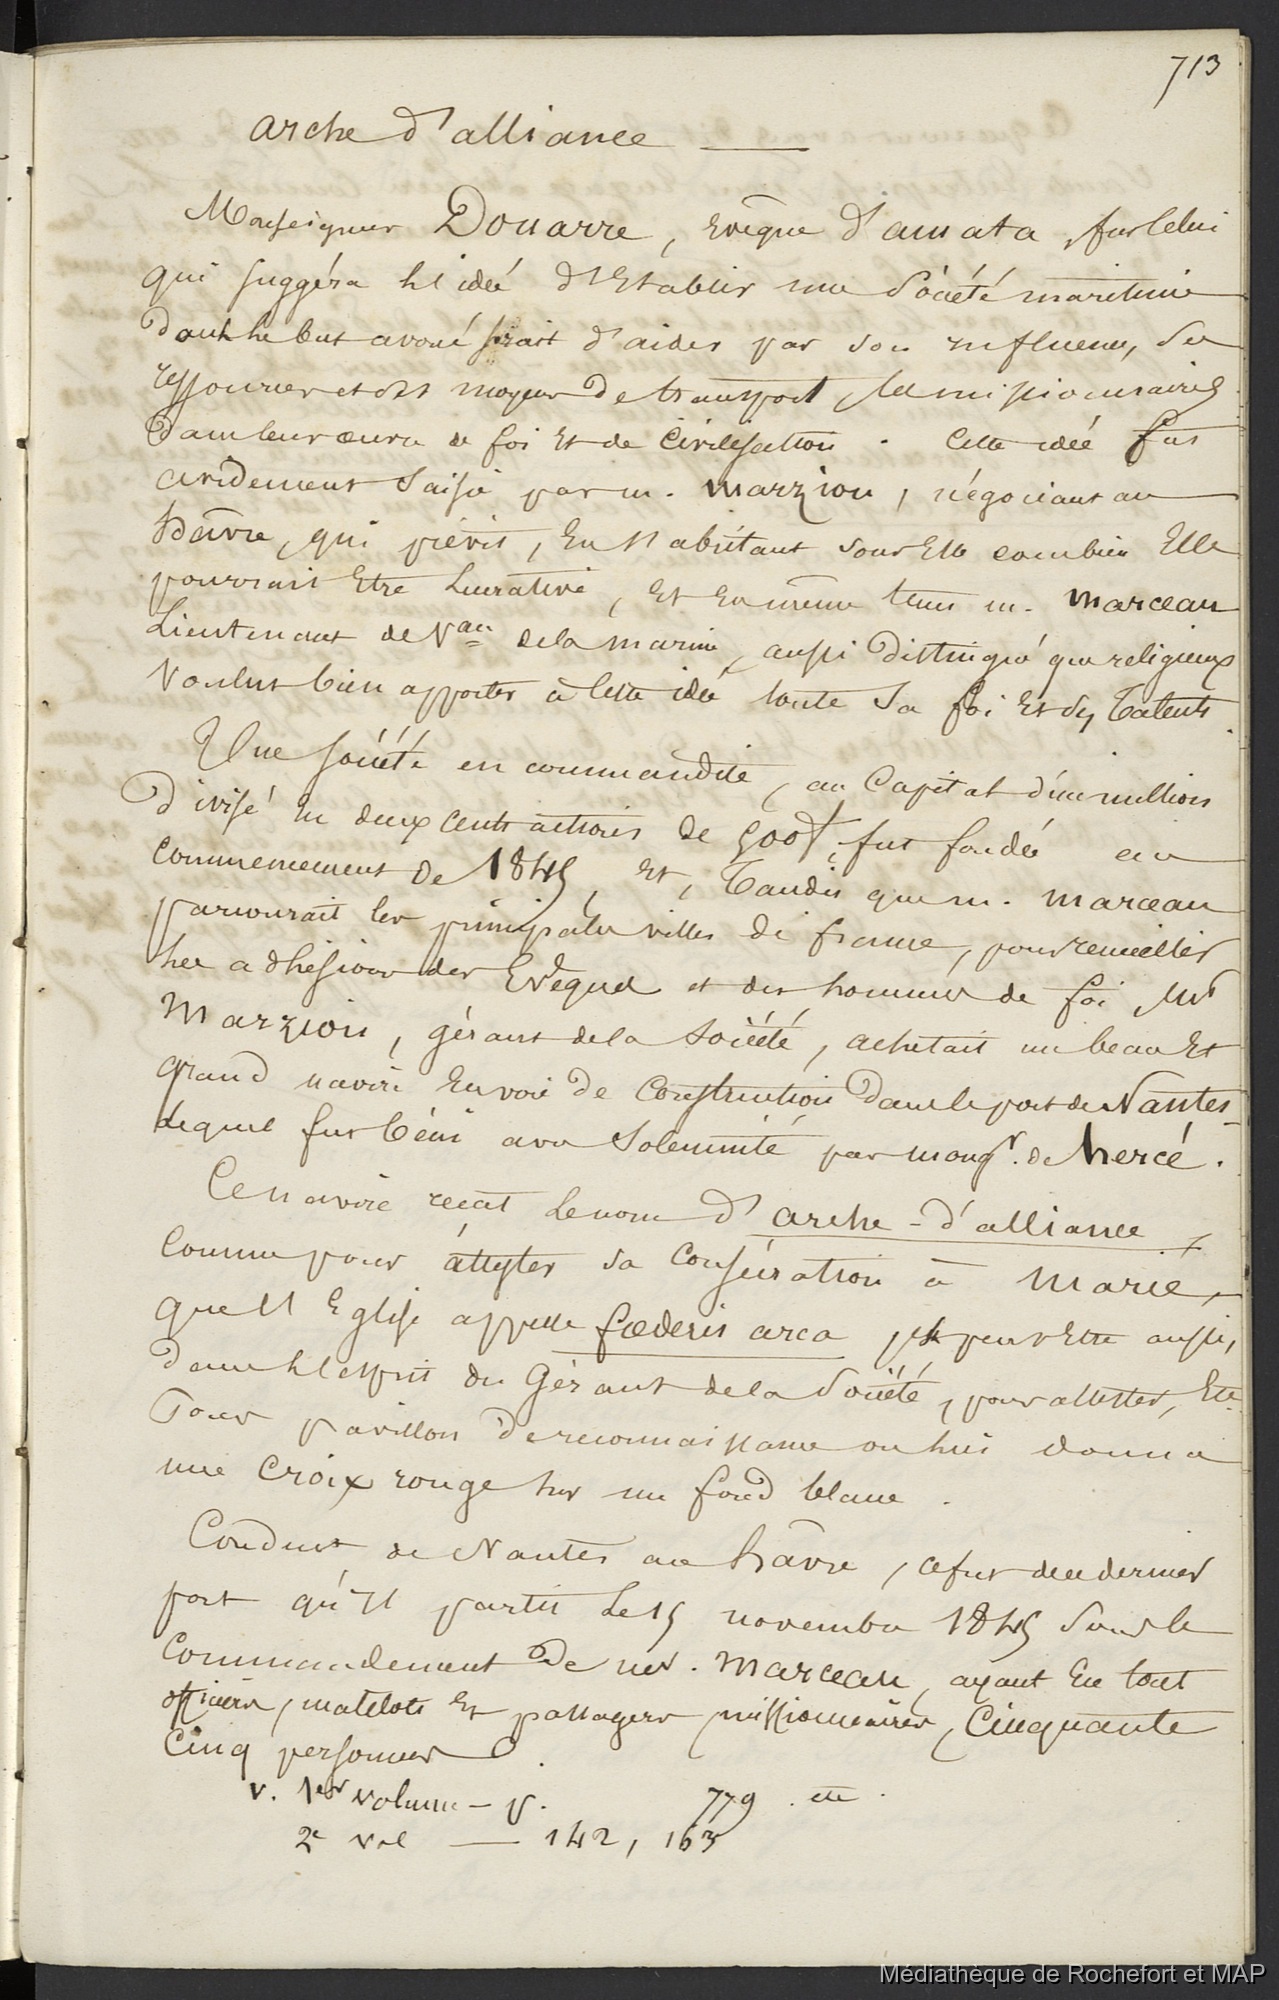 713
Arche d'alliance ——
Monseigneur Douarre, Evêque d'amata, fut celui
qui suggéra l'idée d'Etablir une Société maritime
dont le but avoué serait d'aider par son influence, ses
ressources et ses moyens de transport, les missionnaires
dans leur œuvre de foi Et de Civilisation. Cette idée fut
avidement saisie par m. Marzion, négociant au
hâvre, qui prévit, En s'abritant sous Elle combien Elle
pourrait Etre Lucrative, Et En même tems m. Marceau
Lieutenant de Vau de la marine, aussi distingué que religieux
voulut bien apporter à cette idée toute sa foi Et ses Talents.
Une société en commandite, au Capital d'un million
divisé En deux cents actions de 500f, fut fondée au
commencement de 1845, Et, Tandis que m. Marceau
parcourait les principales villes de france, pour recueillir
les adhésions des Evêques et des hommes de foi, Mr
Marzion, gérant de la Société, achetait un beau Et
grand navire En voie de Construction dans le port de Nantes
lequel fut béni avec Solemnité par mongr. de hercé.
Ce navire reçut le nom d'arche-d'alliance,
comme pour attester sa Consécration à Marie,
que l'Eglise appelle fœderis arca, peut Etre aussi,
dans l'esprit du Gérant de la Société, pour attester, Etc.
Pour pavillon de reconnaissance on lui donna
une Croix rouge sur un fond blanc.
Conduit de Nantes au hâvre, ce fut de ce dernier
port qu'il partit Le 15 novembre 1845 sous le
Commandement de mr. Marceau, ayant En tout
officiers, matelots Et passagers missionnaires, Cinquante
Cinq personnes.
v. 1er volume – p. 779. etc.
2e vol — 142, 163
Médiathèque de Rochefort et MAP